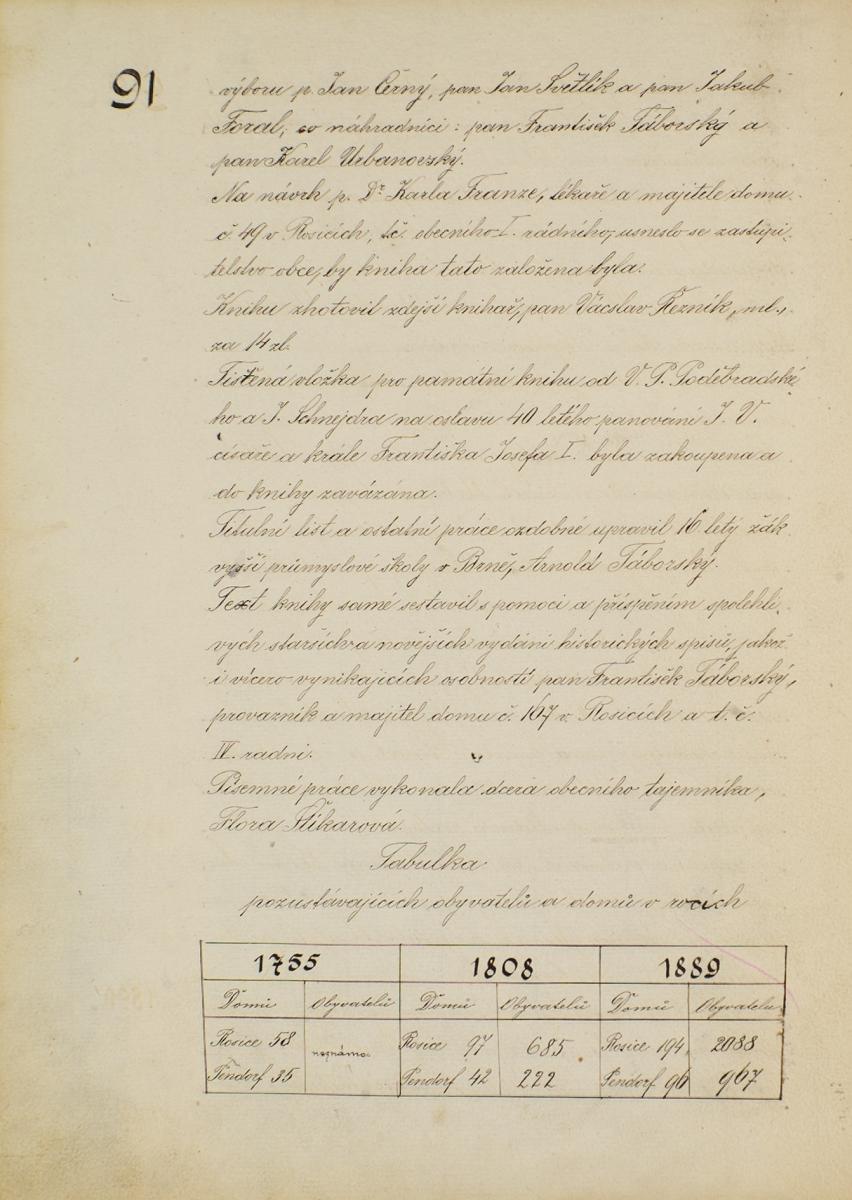 91
výboru p. Jan Černý, pan Jan Světlík a pan Jakub
Foral, co náhradníci: pan František Táborský a
pan Karel Urbanovzský.
Na návrh p. Dr Karla Franze, lékaře a majitele domu
č. 49 v Rosicích, t.č. obecního I. rádního, usneslo se zastupi-
telstvo obce, by kniha tato založena byla.
Knihu zhotovil zdejší knihař, pan Vácslav Řezník, ml.,
za 14 zl.
Tištěná vložka pro památní knihu od V. P. Poděbradské
ho a J. Schnejdra na oslavu 40 letého panování J. V.
císaře a krále Františka Josefa I. byla zakoupena a
do knihy zavázána.
Titulní list a ostatní práce ozdobné upravil 16 letý žák
vyšší průmyslové školy v Brně, Arnold Táborský.
Text knihy samé sestavil s pomocí a přispěním spolehli-
vých starších a novějších vydání historických spisů, jakož
i vícero vynikajících osobností pan František Táborský,
provazník a majitel domu č. 167 v Rosicích a t. č.
IV. radní.
Písemné práce vykonala dcera obecního tajemníka,
Flora Štikarová.
Tabulka
pozustávajících obyvatelů a domů v rocích
1755 1808 1889
Domů Obyvatelů Domů Obyvatelů Domů Obyvatelů
Rosice 58 neznámo Rosice 97 685 Rosice 194 2088
Pendorf 35 Pendorf 42 222 Pendorf 96 967